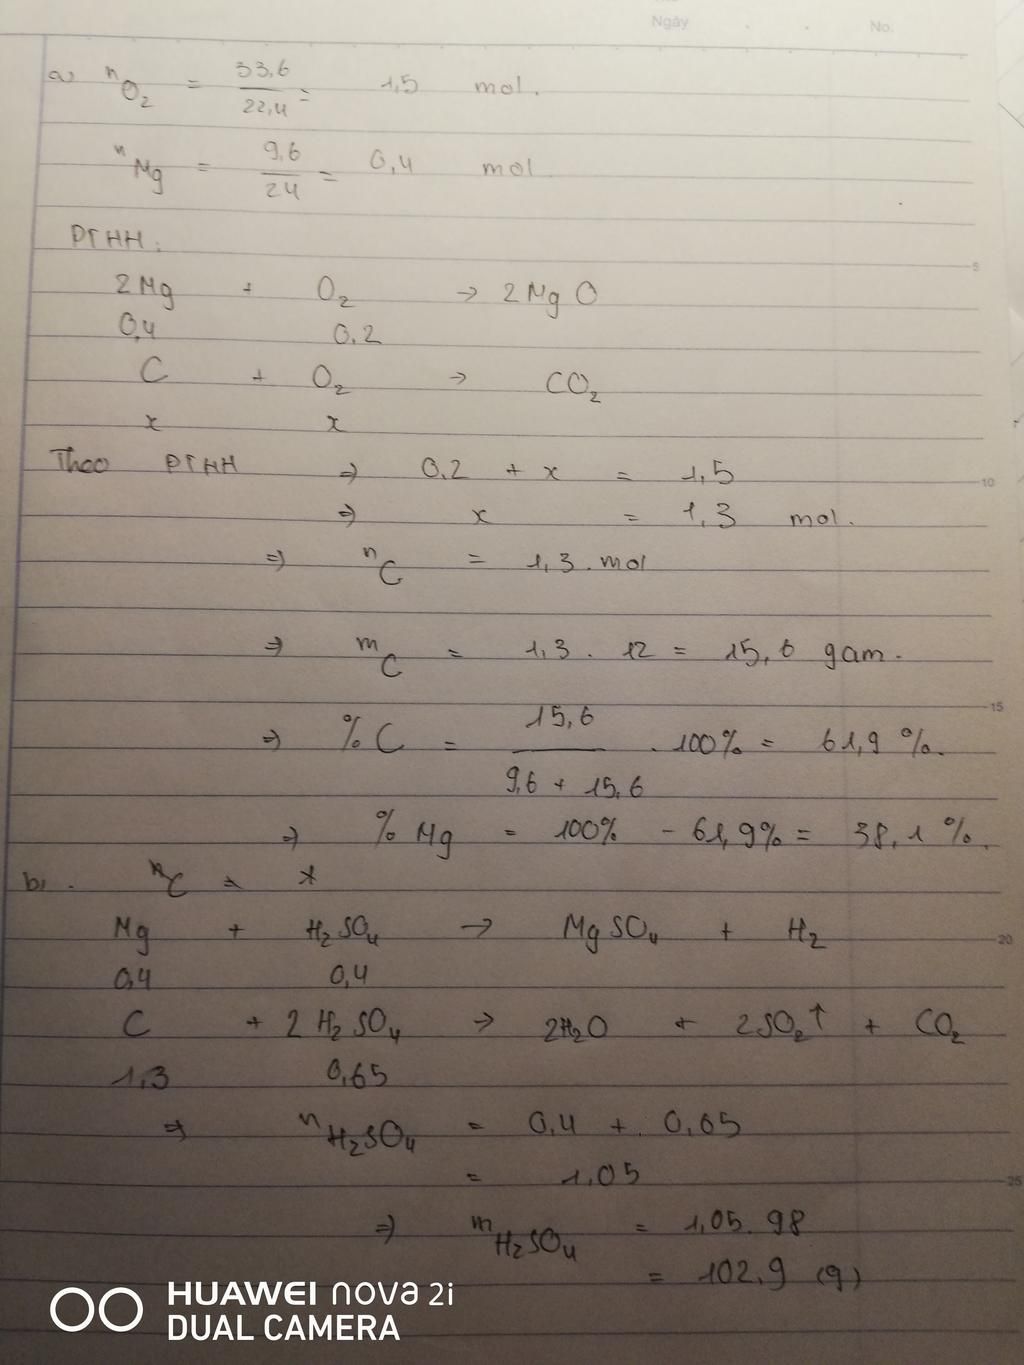 Ngày . . No.
a) nO₂ = 33,6/22,4 = 1,5 mol.
nMg = 9,6/24 = 0,4 mol.
PTHH:
5
2Mg + O₂ → 2MgO
0,4 0.2
C + O₂ → CO₂
x x
Theo PTHH ⇒ 0.2 + x = 1,5
10
⇒ x = 1,3 mol.
⇒ nC = 1,3.mol
⇒ mC = 1,3. 12 = 15,6 gam.
15
⇒ %C = 15,6/(9,6 + 15,6) .100% = 61,9 %.
⇒ % Mg = 100% - 61,9% = 38,1 %.
b). nC = x
Mg + H₂SO₄ → MgSO₄ + H₂
20
0,4 0,4
C + 2H₂SO₄ → 2H₂O + 2SO₂↑ + CO₂
1,3 0,65
⇒ nH₂SO₄ = 0,4 + 0,65
= 1,05
25
⇒ mH₂SO₄ = 1,05.98
= 102,9 (g)
HUAWEI nova 2i
DUAL CAMERA